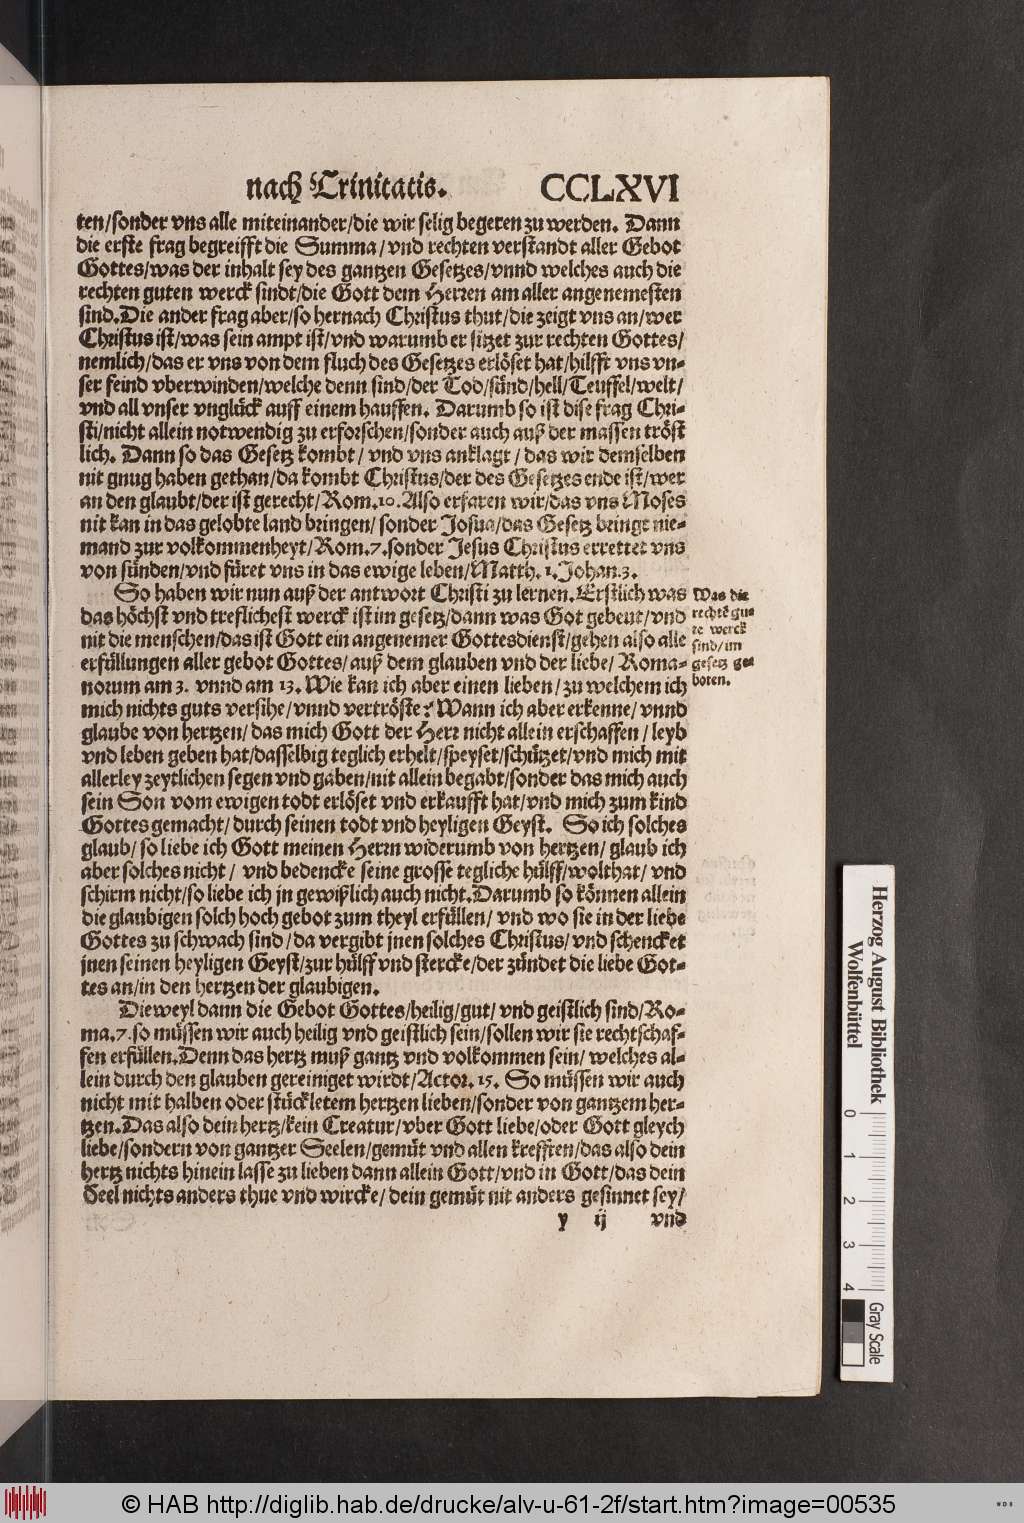 nach Trinitatis. CCLXVI
ten/sonder vns alle miteinander/die wir selig begeren zu werden. Dann
die erste frag begreifft die Summa/vnd rechten verstandt aller Gebot
Gottes/was der inhalt sey des gantzen Gesetzes/vnnd welches auch die
rechten guten werck sindt/die Gott dem Herren am aller angenemesten
sind. Die ander frag aber/so hernach Christus thut/die zeigt vns an/wer
Christus ist/was sein ampt ist/vnd warumb er sitzet zur rechten Gottes/
nemlich/das er vns von dem fluch des Gesetzes erlöset hat/hilfft vns vn-
ser feind vberwinden/welche denn sind/der Tod/sünd/hell/Teuffel/welt/
vnd all vnser vnglück auff einem hauffen. Darumb so ist dise frag Chri-
sti/nicht allein notwendig zu erforschen/sonder auch auß der massen tröst
lich. Dann so das Gesetz kombt/ vnd vns anklagt/ das wir demselben
nit gnug haben gethan/da kombt Christus/der des Gesetzes ende ist/wer
an den glaubt/der ist gerecht/Rom.10. Also erfaren wir/das vns Moses
nit kan in das gelobte land bringen/ sonder Josua/das Gesetz bringt nie-
mand zur volkommenheyt/Rom.7.sonder Jesus Christus errettet vns
von sünden/vnd füret vns in das ewige leben/Matth. 1. Johan.3.
So haben wir nun auß der antwort Christi zu lernen. Erstlich was
das höchst vnd treflichest werck ist im gesetz/dann was Got gebeut/vnd
nit die menschen/das ist Gott ein angenemer Gottesdienst/gehen also alle
erfüllungen aller gebot Gottes/auß dem glauben vnd der liebe/ Roma-
norum am 3. vnnd am 13. Wie kan ich aber einen lieben/zu welchem ich
mich nichts guts versihe/vnnd vertröste? Wann ich aber erkenne/vnnd
glaube von hertzen/das mich Gott der Herr nicht allein erschaffen/leyb
vnd leben geben hat/dasselbig teglich erhelt/speyset/schützet/vnd mich mit
allerley zeytlichen segen vnd gaben/nit allein begabt/sonder das mich auch
sein Son vom ewigen todt erlöset vnd erkaufft hat/vnd mich zum kind
Gottes gemacht/durch seinen todt vnd heyligen Geyst. So ich solches
glaub/ so liebe ich Gott meinen Herrn widerumb von hertzen/ glaub ich
aber solches nicht/ vnd bedencke seine grosse tegliche hülff/wolthat/ vnd
schirm nicht/so liebe ich jn gewißlich auch nicht. Darumb so können allein
die glaubigen solch hoch gebot zum theyl erfüllen/ vnd wo sie in der liebe
Gottes zu schwach sind/da vergibt jnen solches Christus/vnd schencket
jnen seinen heyligen Geyst/zur hülff vnd stercke/der zündet die liebe Got-
tes an/in den hertzen der glaubigen.
Dieweyl dann die Gebot Gottes/heilig/gut/ vnd geistlich sind/Ro-
ma.7.so müssen wir auch heilig vnd geistlich sein/sollen wir sie rechtschaf-
fen erfüllen. Denn das hertz muß gantz vnd volkommen sein/ welches al-
lein durch den glauben gereiniget wirdt/Actor. 15. So müssen wir auch
nicht mit halben oder stückletem hertzen lieben/sonder von gantzem her-
tzen. Das also dein hertz/kein Creatur/vber Gott liebe/oder Gott gleych
liebe/sondern von gantzer Seelen/gemüt vnd allen krefften/das also dein
hertz nichts hinein lasse zu lieben dann allein Gott/vnd in Gott/das dein
Seel nichts anders thue vnd wircke/ dein gemüt nit anders gesinnet sey/
y ij vnd
Was die
rechtē gu-
te werck
sind/im
gesetz ge-
boten.
Herzog August Bibliothek
Wolfenbüttel
0 1 2 3 4
Gray Scale
© HAB http://diglib.hab.de/drucke/alv-u-61-2f/start.htm?image=00535